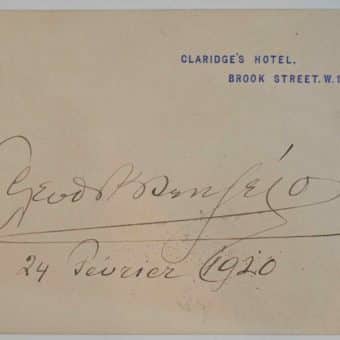 CLARIDGE'S HOTEL,
BROOK STREET. W.1
24 Février 1920